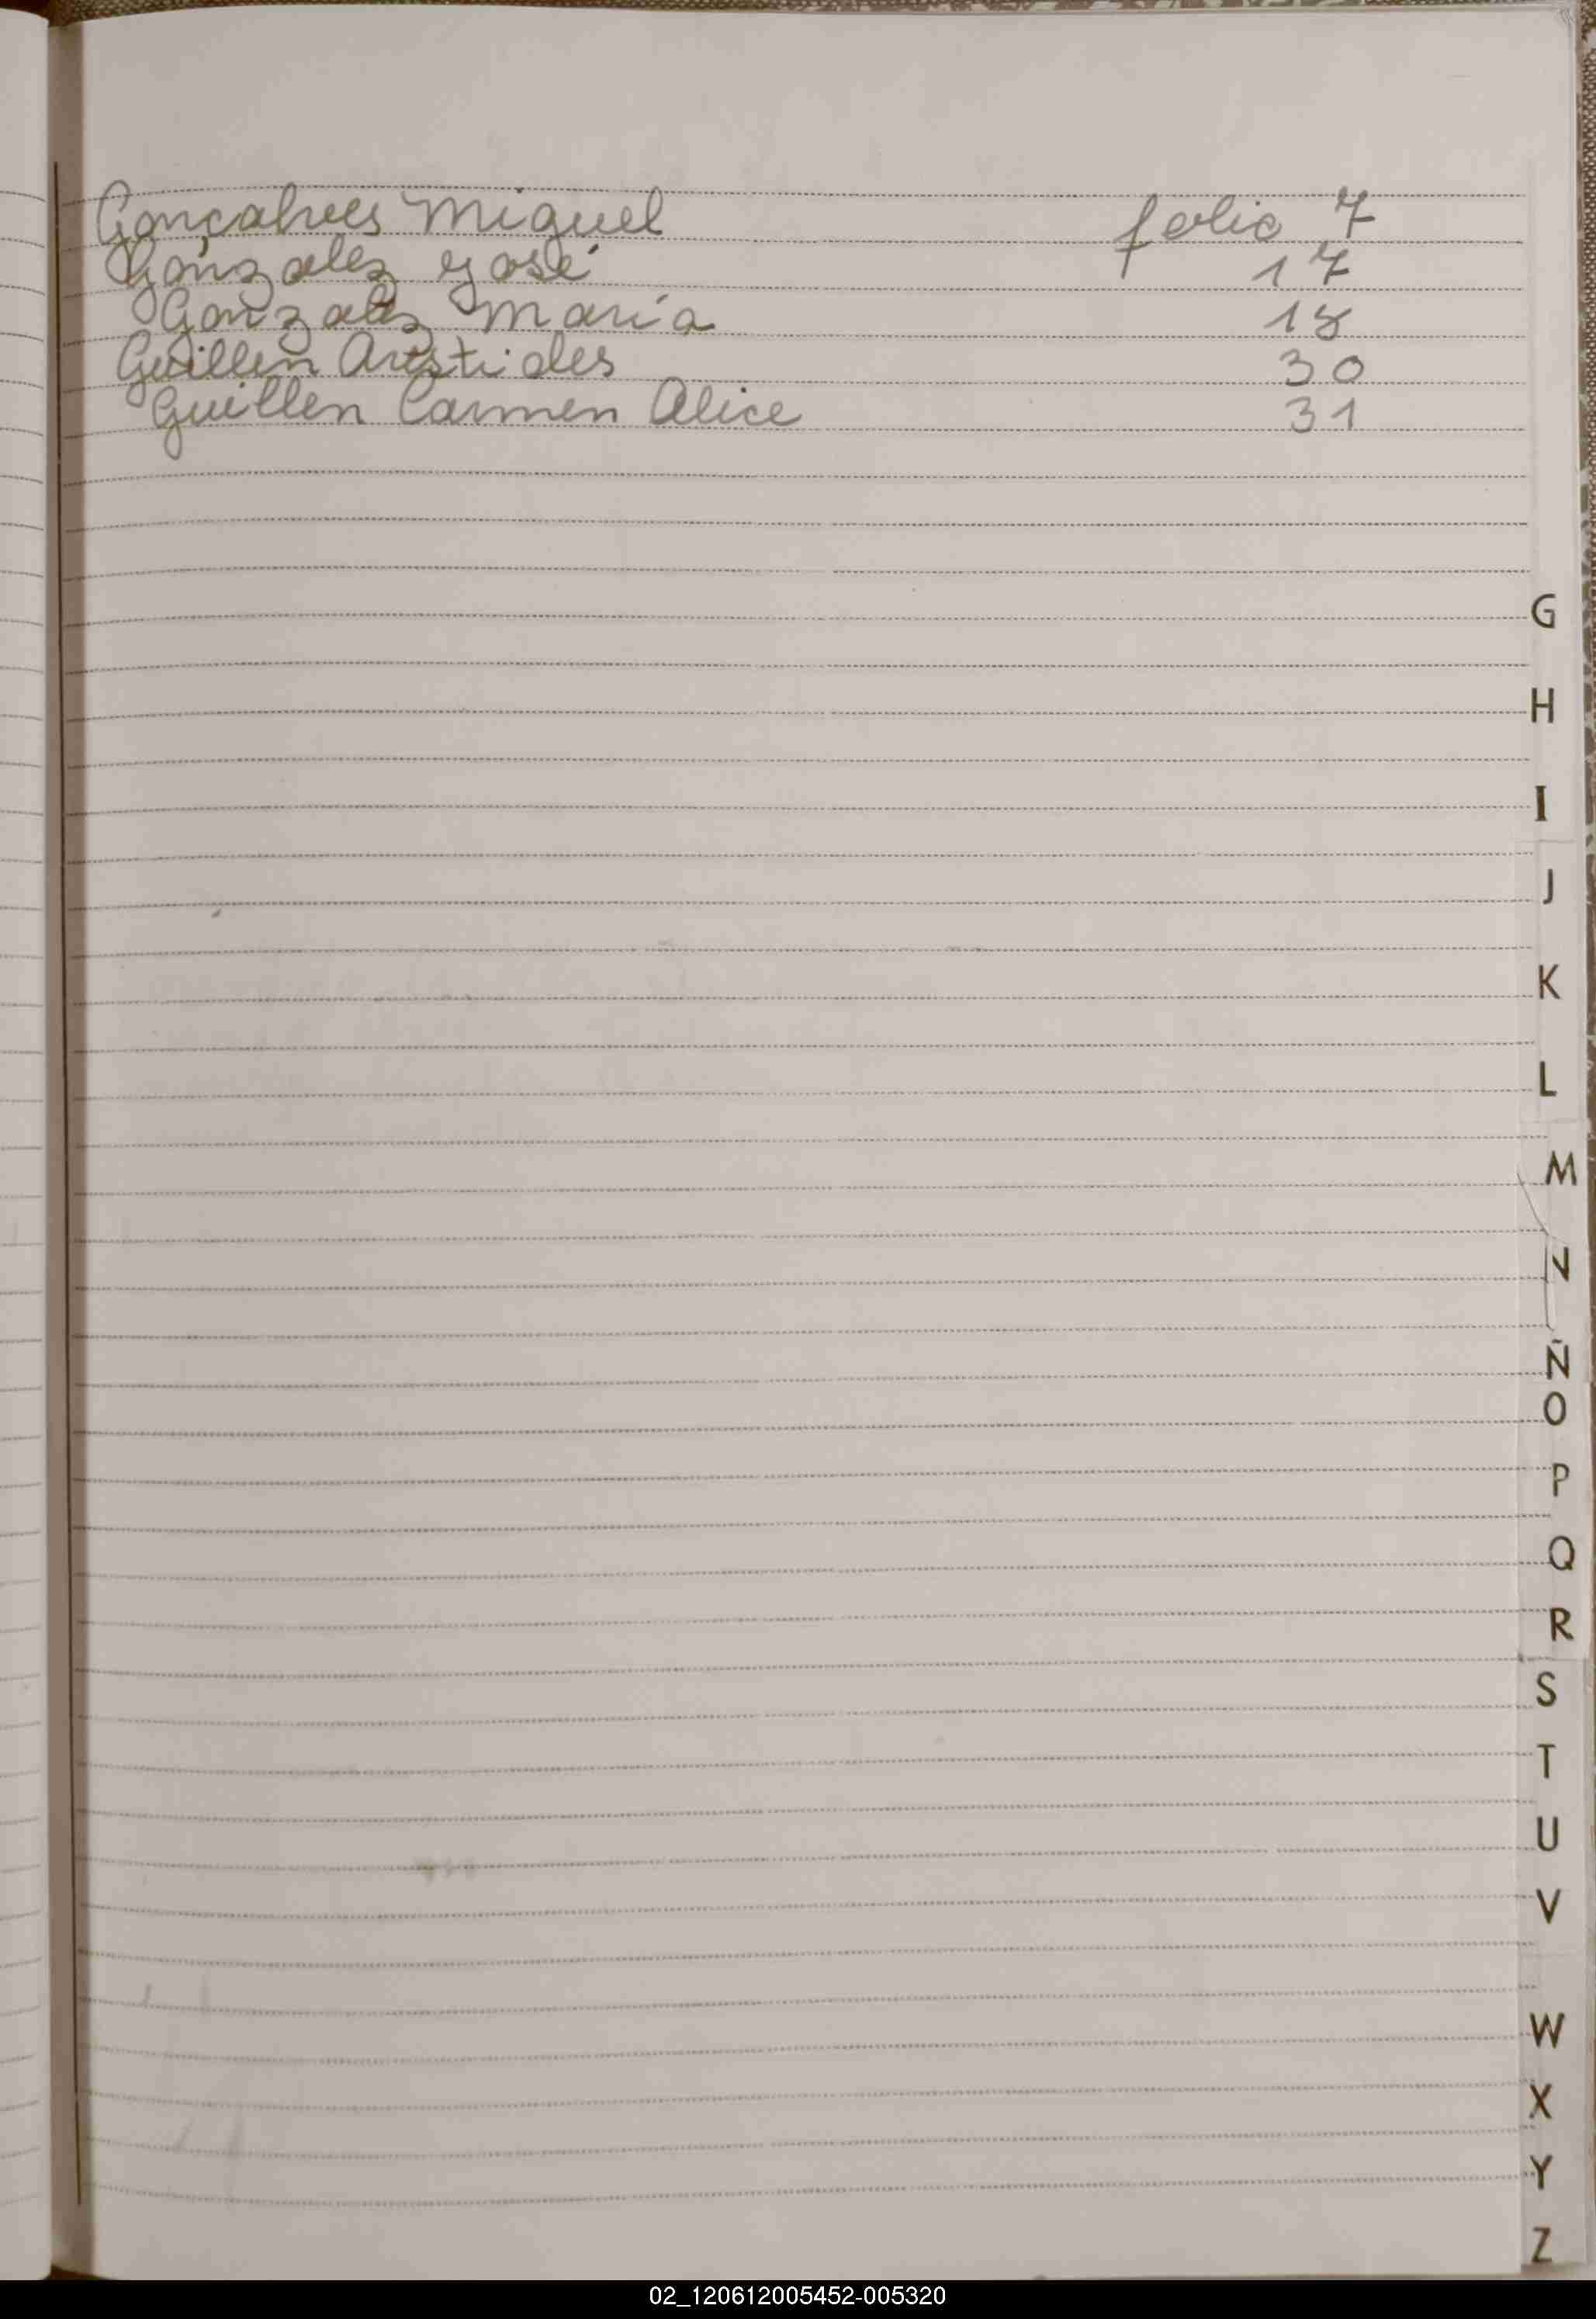 Gonçalves Miguel folio 7
Gonzalez José 17
Gonzalez María 18
Guillen Aristides 30
Guillen Carmen Alice 31
G
H
I
J
K
L
M
N
Ñ
O
P
Q
R
S
T
U
V
W
X
Y
Z
02_120612005452-005320